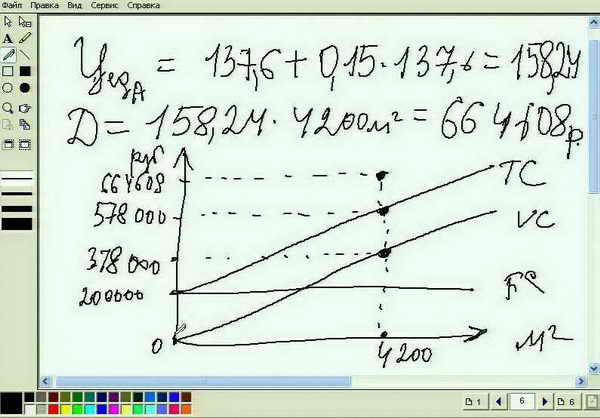 Файл Правка Вид Сервис Справка
Цед А = 137,6 + 0,15 · 137,6 = 158,24
Д = 158,24 · 4200 м² = 664608 р.
руб
664608
578 000
378 000
200000
0
4200
м²
TC
VC
FC
1
6
6